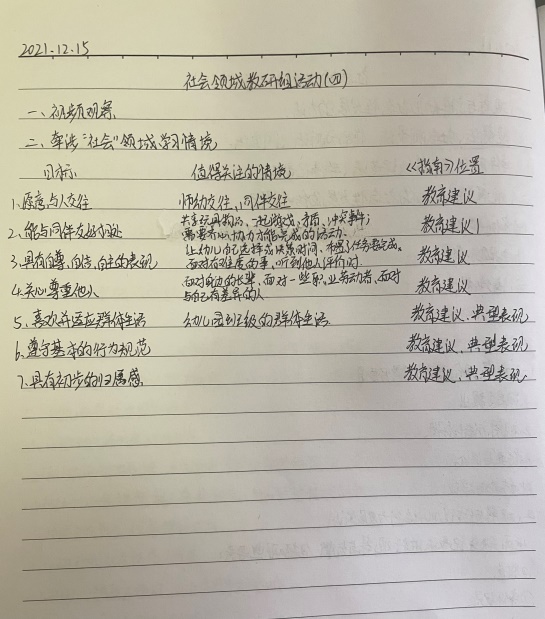 2021.12.15
社会领域教研组活动(四)
一、视频观察
二、牵涉"社会"领域学习情境
目标 值得关注的情境 《指南》位置
1.愿意与人交往 师幼交往、同伴交往 教育建议
2.能与同伴友好相处 共享玩具物品、一起游戏、矛盾、冲突事件; 教育建议1
需要齐心协力才能完成的活动.
3.具有自尊、自信、自主的表现 让幼儿自己选择或决策时间、根据任务都完成、 教育建议
面对有难度的事、听到他人评价时
4.关心尊重他人 面对身边的长辈、面对一些职业劳动者、面对 教育建议
与自己有差异的人
5.喜欢并适应群体生活 幼儿园班级的群体生活 教育建议、典型表现
6.遵守基本的行为规范 教育建议、典型表现
7.具有初步的归属感 教育建议、典型表现